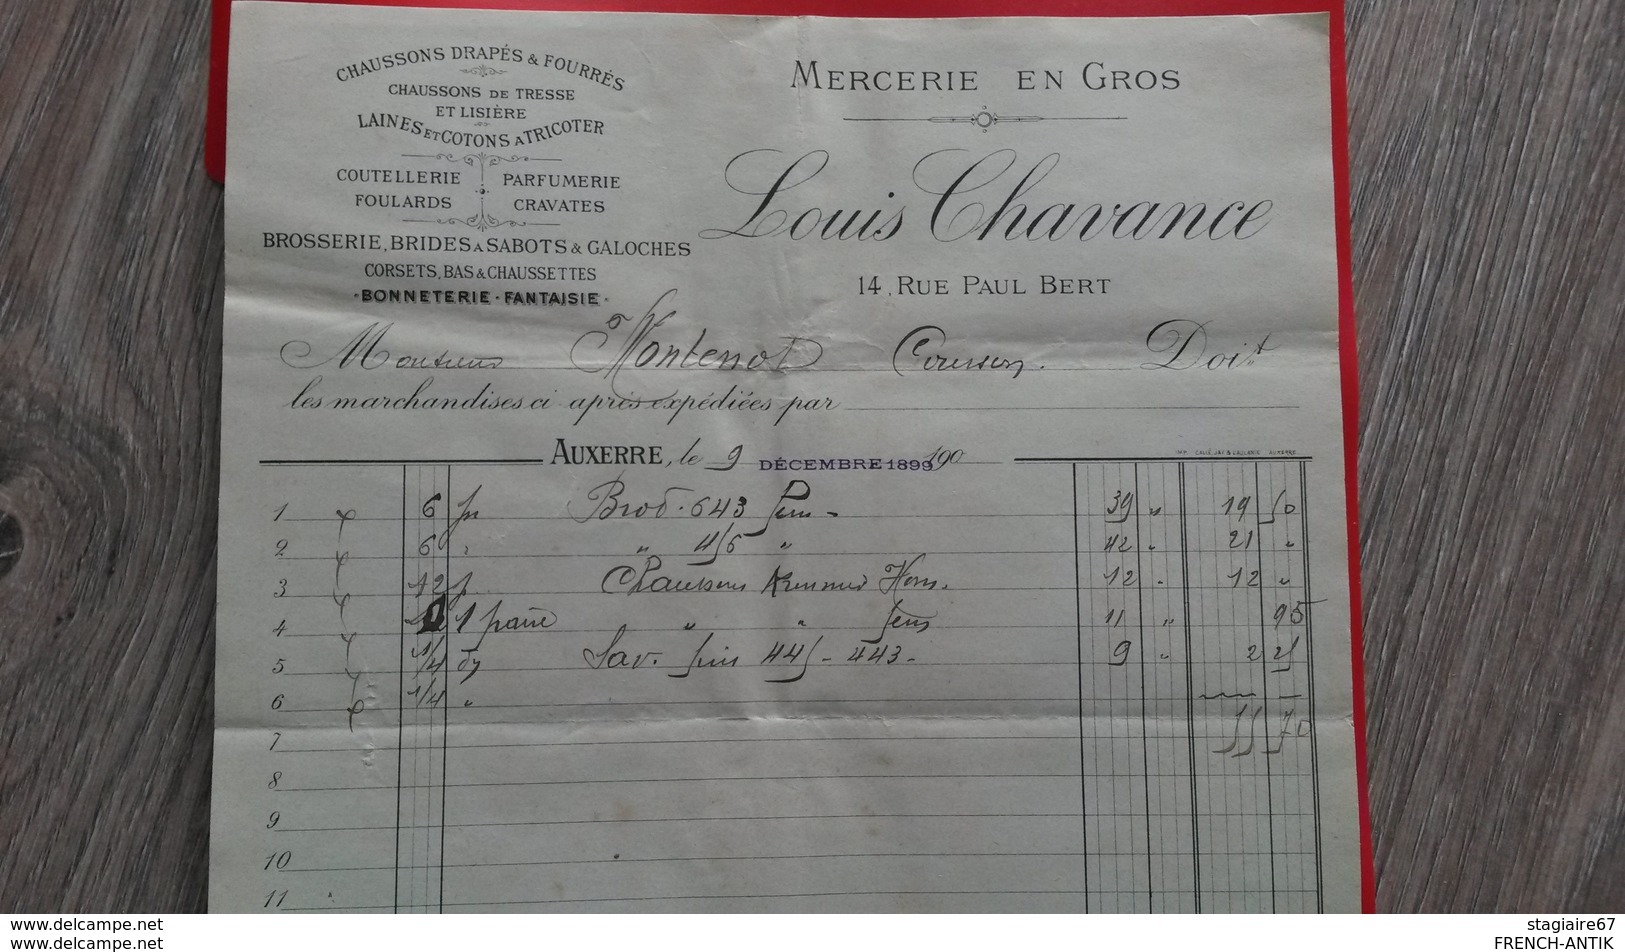 CHAUSSONS DRAPÉS & FOURRÉS
CHAUSSONS DE TRESSE
ET LISIÈRE
LAINES ET COTONS A TRICOTER
COUTELLERIE PARFUMERIE
FOULARDS CRAVATES
BROSSERIE, BRIDES A SABOTS & GALOCHES
CORSETS, BAS & CHAUSSETTES
BONNETERIE - FANTAISIE
MERCERIE EN GROS
Louis Chavance
14, RUE PAUL BERT
Monsieur Montenot Doit
les marchandises ci après expédiées par
AUXERRE, le 9 DÉCEMBRE 1899 190
1 6 Brod. 643 19 50
2 6 " 456 " 42 " 21 "
3 12 Chaussons Hom. 12 " 12 "
4 1 paire " " fem 11 " 95
5 1/4 Sav. 445 - 443 - 9 " 2 25
6 1/4 "
7 55 70
8
9
10
11
www.delcampe.net
stagiaire67
www.delcampe.net
FRENCH-ANTIK